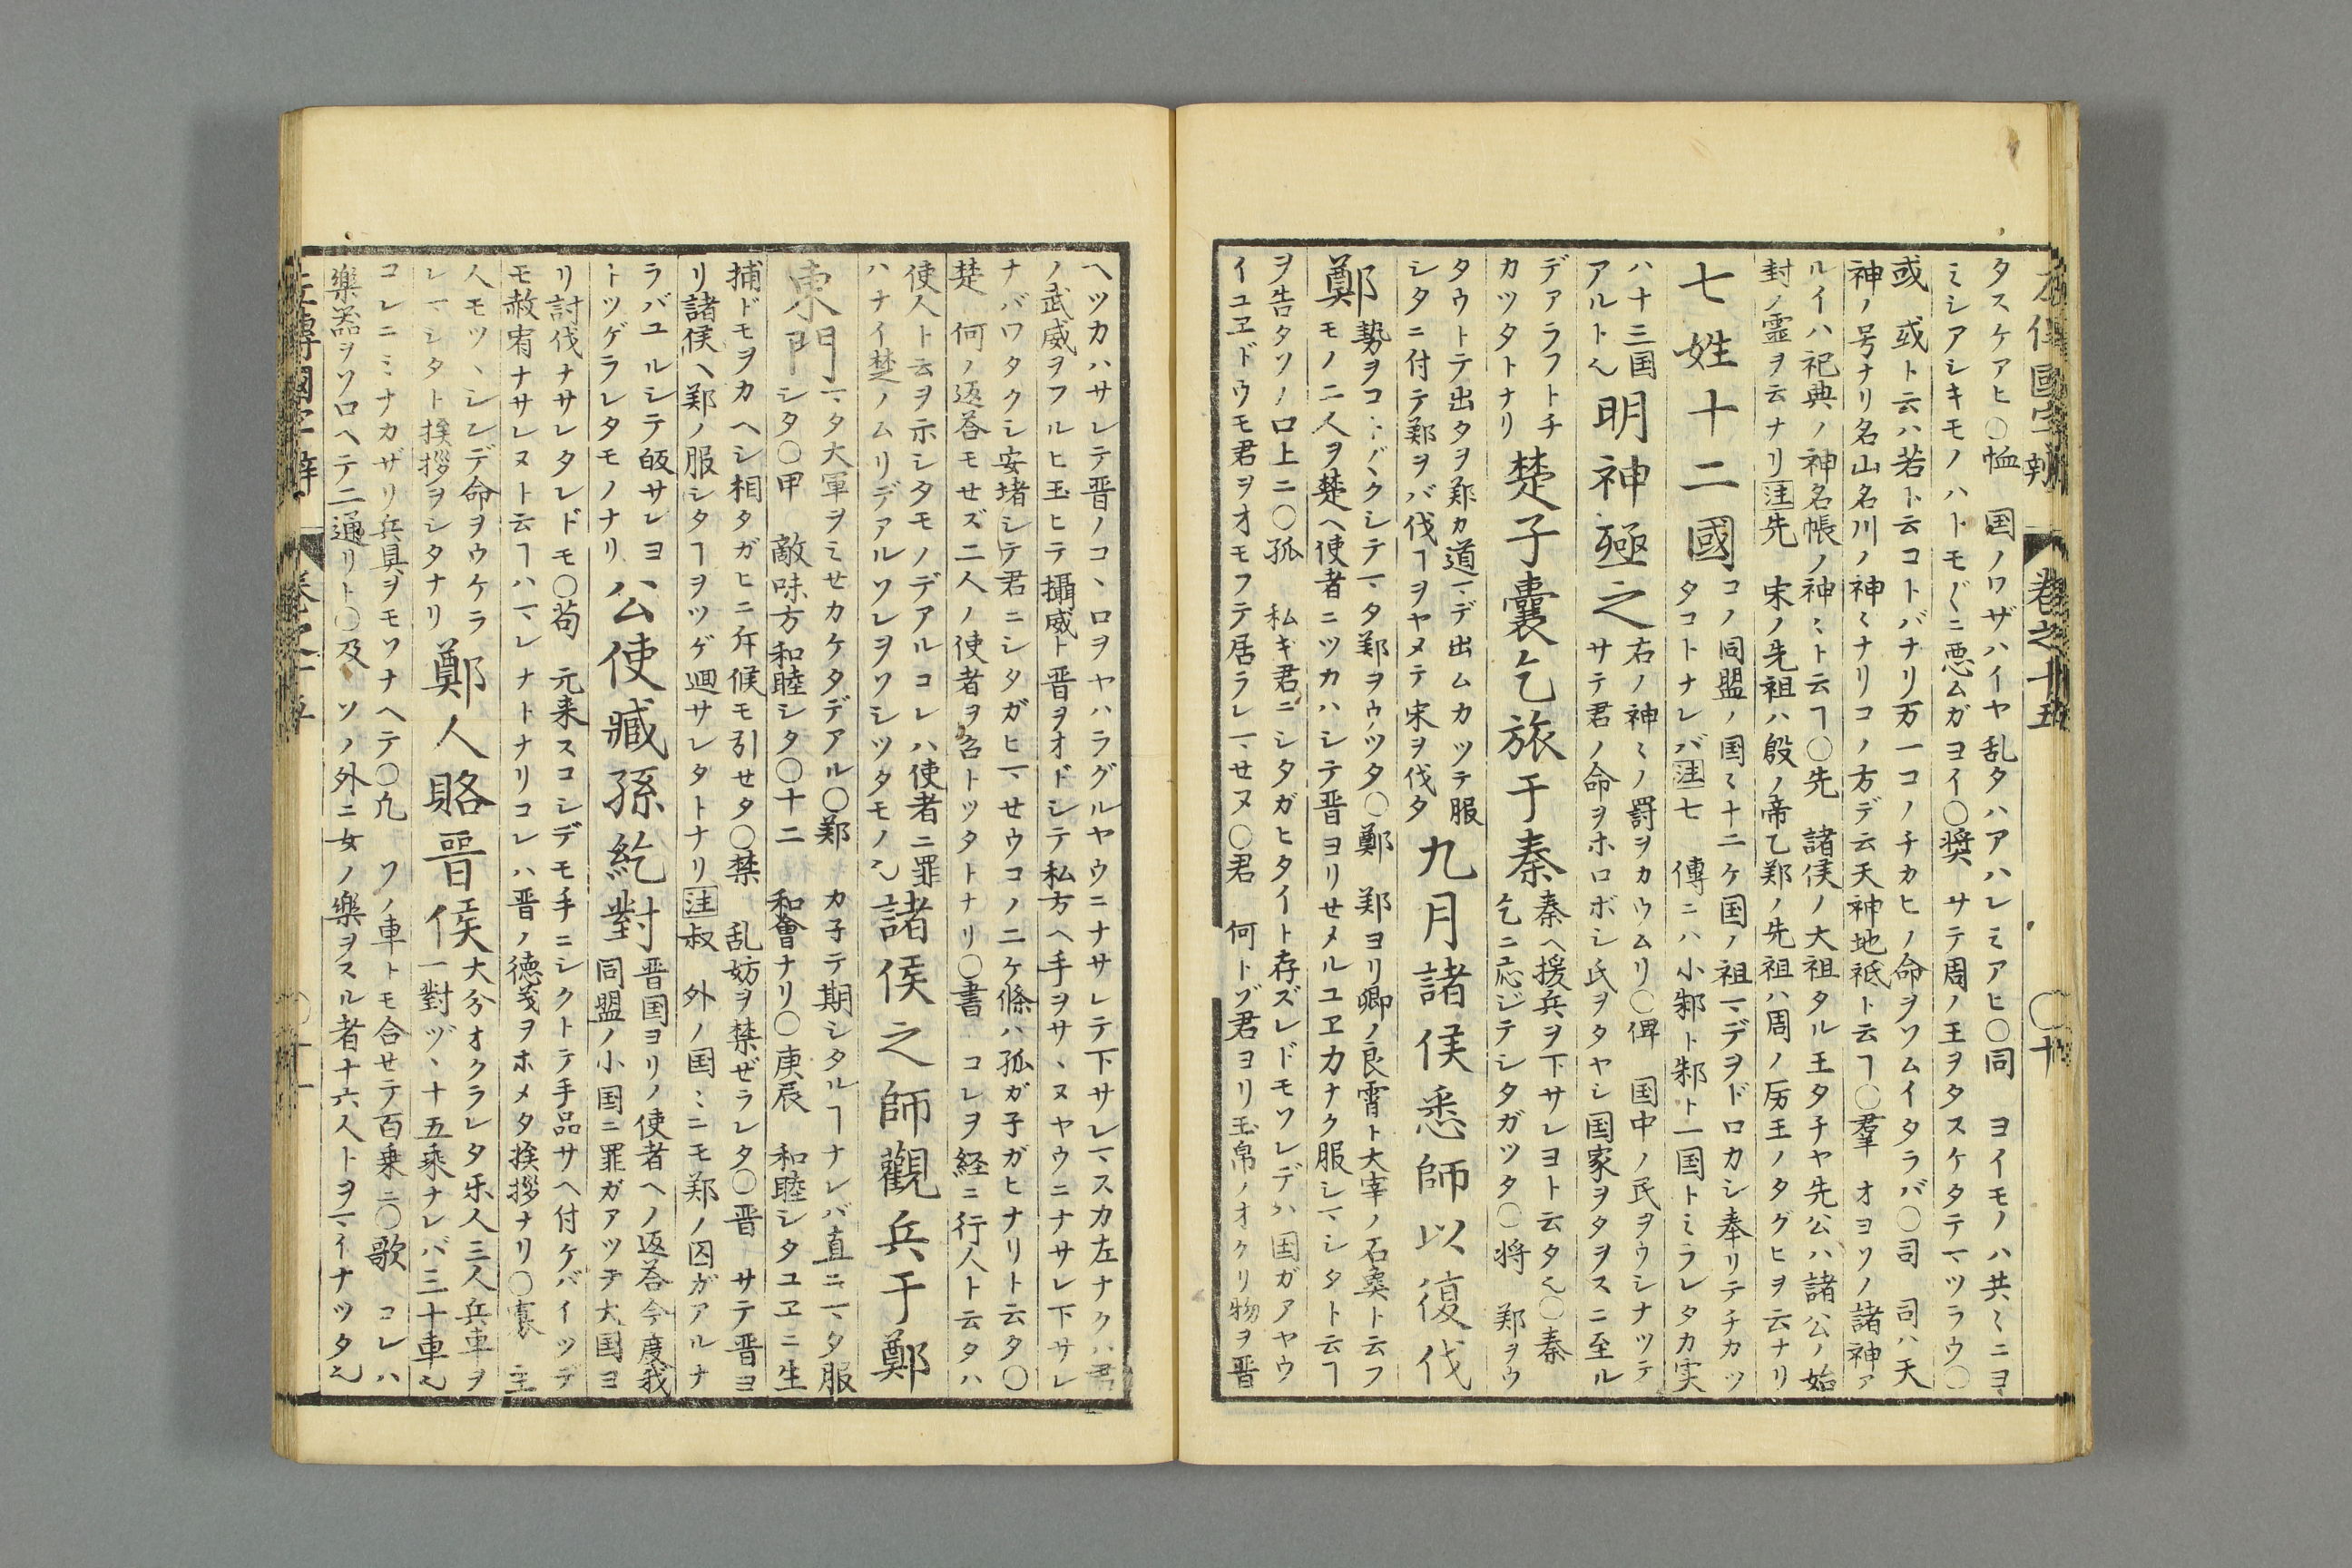 左傳國字辨 卷之十五 〇十
タスケアヒ〇恤 国ノワザハイヤ乱タハアハレミアヒ〇同 ヨイモノハ共〻ニヨ
ミシアシキモノハトモ〴〵ニ悪ムガヨイ〇奨 サテ周ノ王ヲタスケタテマツラウ〇
或 或ト云ハ若ト云コトバナリ万一コノチカヒノ命ヲソムイタラバ〇司 司ハ天
神ノ号ナリ名山名川ノ神〻ナリコノ方デ云天神地祇ト云ヿ〇羣 オヨソノ諸神ア
ルイハ祀典ノ神名帳ノ神〻ト云ヿ〇先 諸侯ノ大祖タル王タチヤ先公ハ諸公ノ始
封ノ霊ヲ云ナリ注先 宋ノ先祖ハ殷ノ帝乙鄭ノ先祖ハ周ノ厉王ノタグヒヲ云ナリ
七姓十二國
コノ同盟ノ国〻十二ケ国ノ祖マデヲドロカシ奉リテチカツ
タコトナレバ注七 傳ニハ小邾ト邾ト一国トミラレタカ実
ハ十三国
アルト也
明神殛之
右ノ神〻ノ罰ヲカウムリ〇俾 国中ノ民ヲウシナツテ
サテ君ノ命ヲホロボシ氏ヲタヤシ国家ヲタヲスニ至ル
デアラフトチ
カツタトナリ
楚子囊乞旅于秦
秦ヘ援兵ヲ下サレヨト云タ也〇秦
乞ニ応ジテシタガツタ〇将 郑ヲウ
タウトテ出タヲ郑カ道マデ出ムカツテ服
シタニ付テ郑ヲバ伐ヿヲヤメテ宋ヲ伐タ
九月諸侯悉師以復伐
鄭
勢ヲコトバクシテマタ郑ヲウツタ〇鄭 郑ヨリ卿ノ良霄ト大宰ノ石㚟ト云フ
モノ二人ヲ楚ヘ使者ニツカハシテ晋ヨリせメルユヱ力ナク服シマシタト云ヿ
ヲ告タソノ口上ニ〇孤 私キ君ニシタガヒタイト存ズレドモソレデハ国ガアヤウ
イユヱドウモ君ヲオモフテ居ラレマせヌ〇君 何トゾ君ヨリ玉帛ノオクリ物ヲ晋
ヘツカハサレテ晋ノコヽロヲヤハラグルヤウニナサレテ下サレマスカ左ナクハ君
ノ武威ヲフルヒ玉ヒテ攝威ト晋ヲオドシテ私方ヘ手ヲサヽヌヤウニナサレ下サレ
ナバワタクシ安堵シテ君ニシタガヒマせウコノ二ケ條ハ孤ガ子ガヒナリト云タ〇
楚 何ノ返荅モせズ二人ノ使者ヲ召トツタトナリ〇書 コレヲ経ニ行人ト云タハ
使人ト云ヲ示シタモノデアルコレハ使者ニ罪
ハナイ楚ノムリデアルソレヲソシツタモノ也
諸侯之師觀兵于鄭
東門
マタ大軍ヲミせカケタデアル〇郑 カ子テ期シタルヿナレバ直ニマタ服
シタ〇甲 敵味方和睦シタ〇十二 和會ナリ〇庚辰 和睦シタユヱニ生
捕ドモヲカヘシ相タガヒニ斥候モ引せタ〇禁 乱妨ヲ禁ぜラレタ〇晋 サテ晋ヨ
リ諸侯ヘ郑ノ服シタヿヲツゲ廻サレタトナリ注叔 外ノ国〻ニモ郑ノ囚ガアルナ
ラバユルシテ皈サレヨ
トツゲラレタモノナリ
公使臧孫紇對
晋国ヨリノ使者ヘノ返荅今度我
同盟ノ小国ニ罪ガアツテ大国ヨ
リ討伐ナサレタレドモ〇苟 元来スコシデモ手ニシクトテ手品サヘ付ケバイツデ
モ赦宥ナサレヌト云ヿハマレナトナリコレハ晋ノ徳義ヲホメタ挨拶ナリ〇寡 主
人モツヽシンデ命ヲウケラ
レマシタト挨拶ヲシタナリ
鄭人賂晉侯
大分オクラレタ乐人三人兵車ヲ
一對ヅヽ十五乘ナレバ三十車也
コレニミナカザリ兵具ヲモソナヘテ〇凢 ソノ車トモ合せテ百乗ニ〇歌 コレハ
樂器ヲソロヘテ二通リト〇及 ソノ外ニ女ノ樂ヲスル者十六人トヲマイナツタ也
左傳國字辨 卷之十五 〇十一